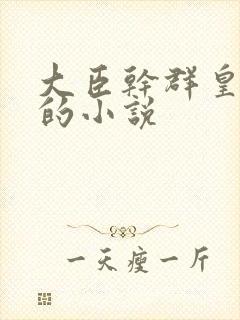 大臣幹群皇
的小説
一天瘦一斤